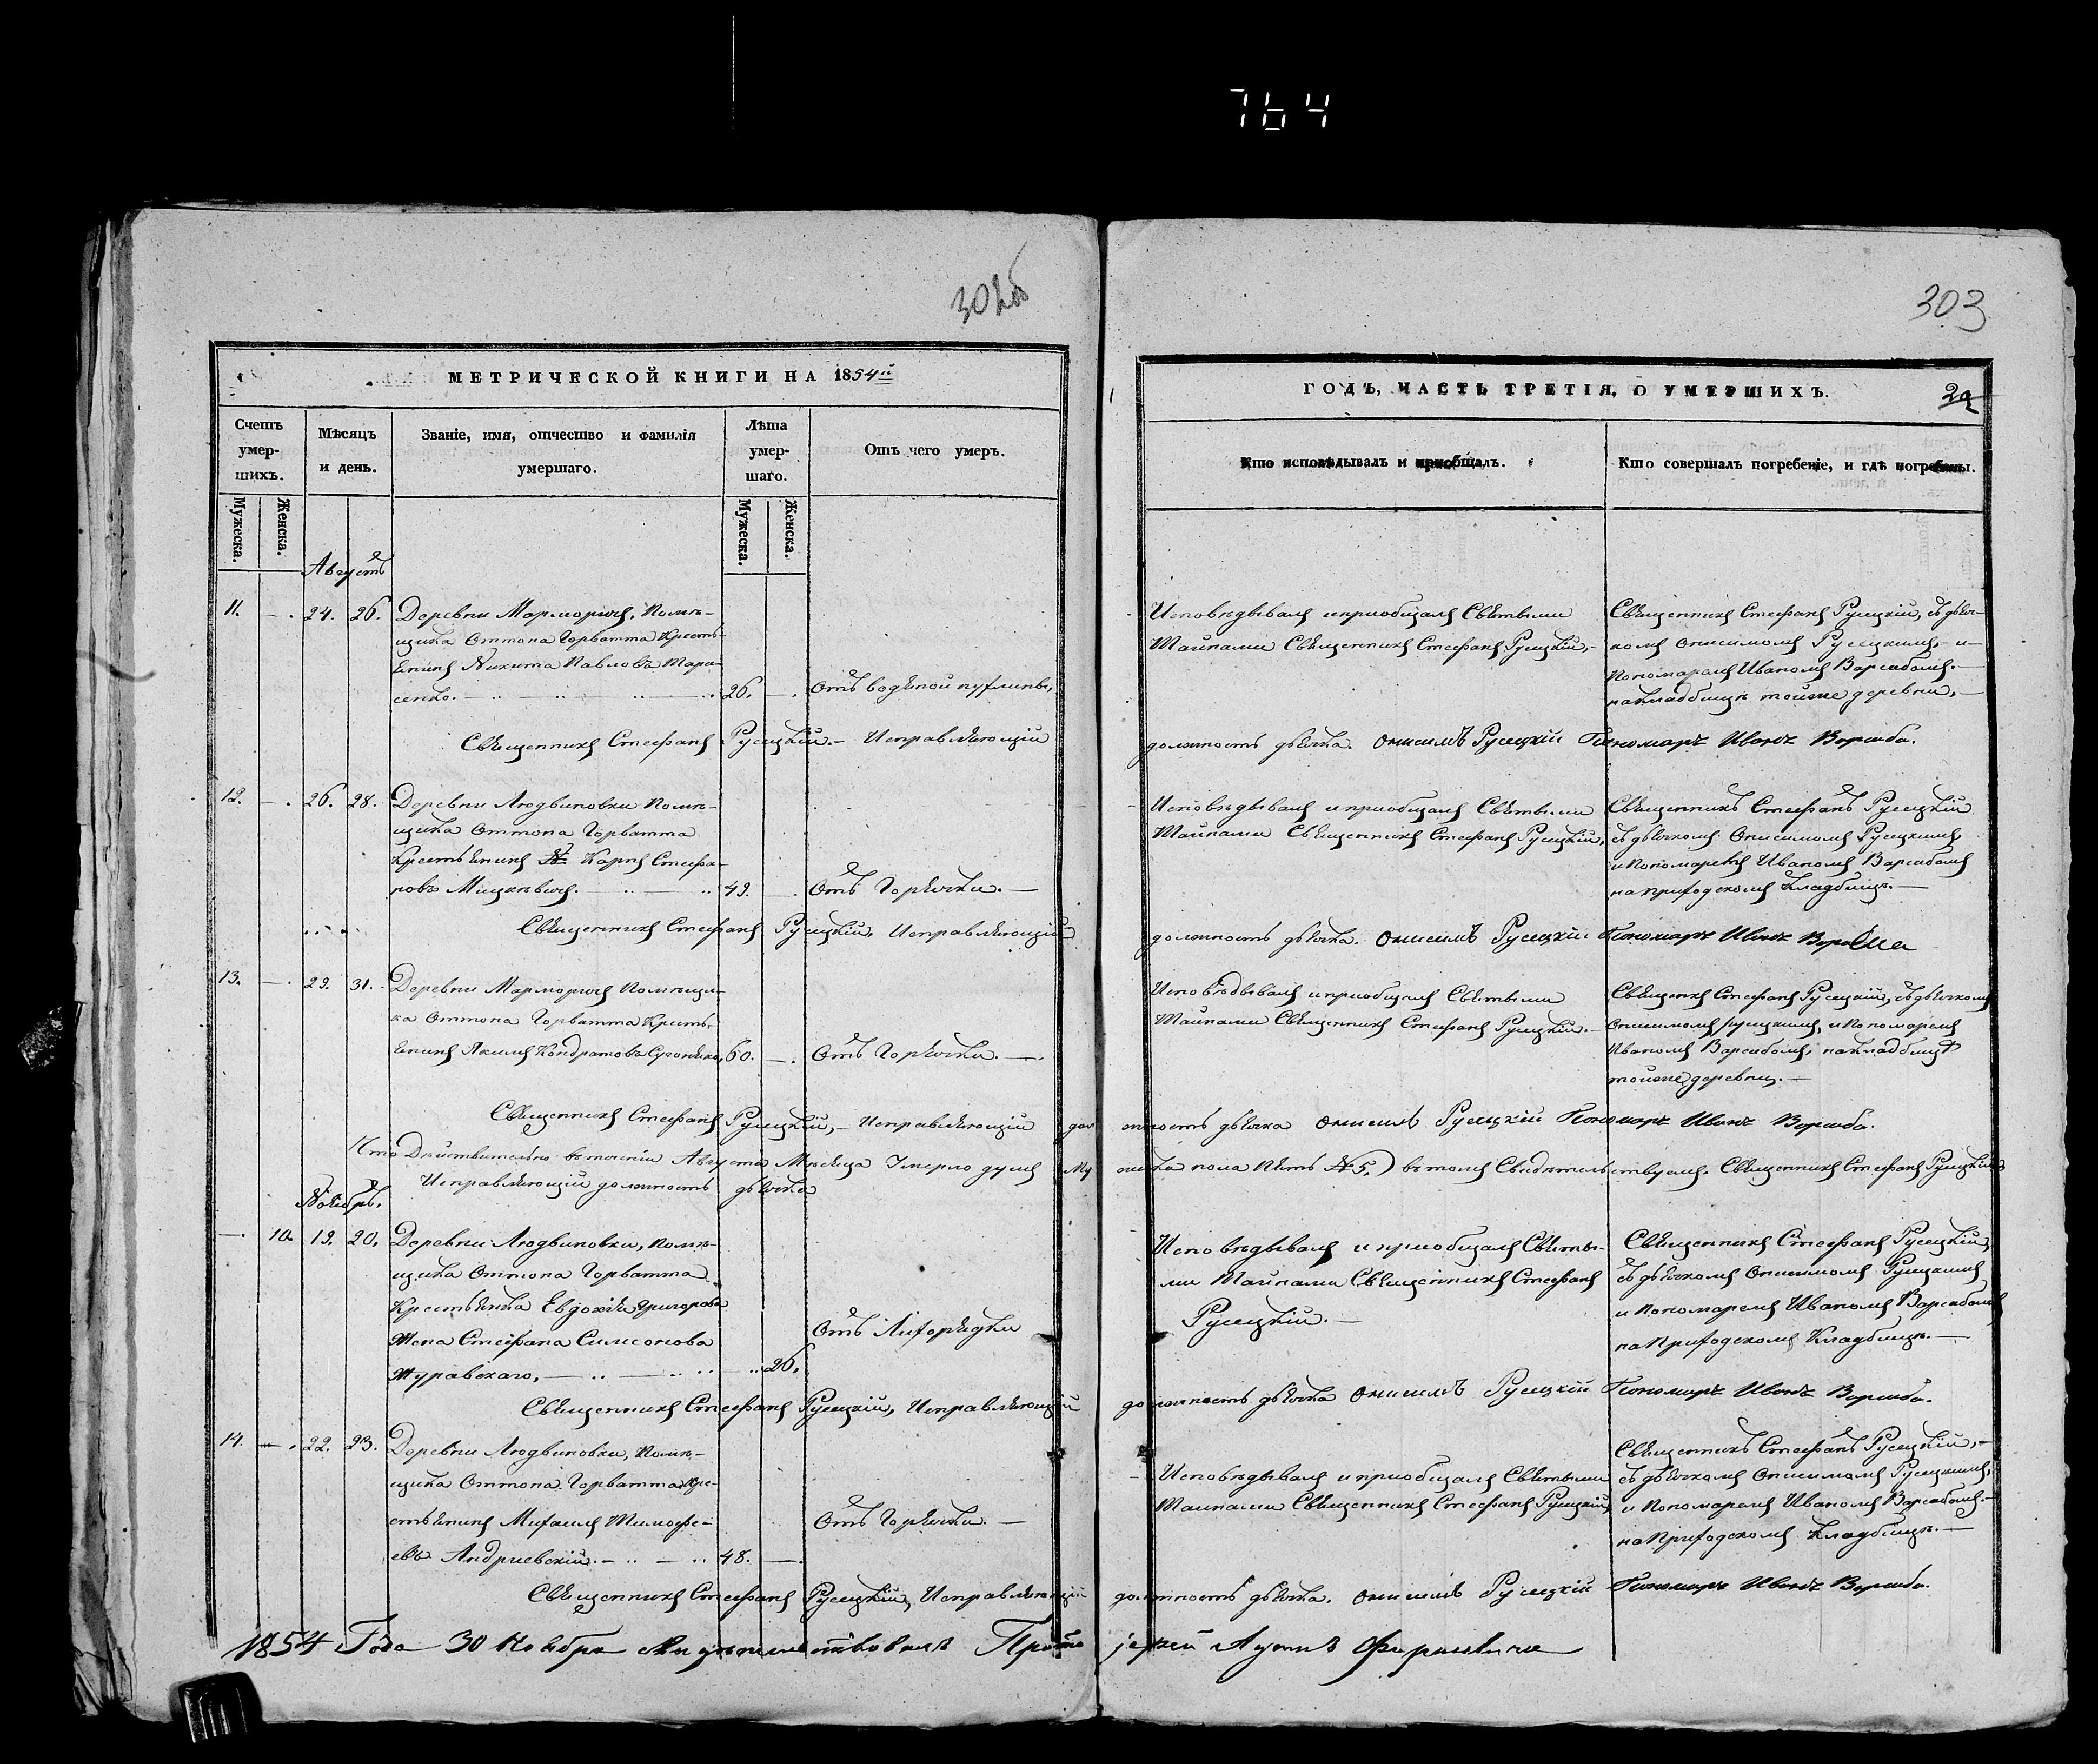 764
302об
303
МЕТРИЧЕСКОЙ КНИГИ НА 1854й
ГОДЪ, ЧАСТЬ ТРЕТІЯ, О УМЕРШИХЪ.
Счетъ умер-шихъ.
Мѣсяцъ и день.
Званіе, имя, отчество и фамилія умершаго.
Лѣта умер-шаго.
Отъ чего умеръ.
Кто исповѣдывалъ и приобщалъ.
Кто совершалъ погребеніе, и гдѣ погребены.
Мужеска.
Женска.
Мужеска.
Женска.
Августъ
11. — 24. 26. Деревни Мармовичъ, Помѣ-
щика Оттона Горватта Кресть-
янинъ Никита Павловъ Тара-
сенко. 26. — Отъ водяной пухлины,
Исповѣдывалъ и приобщалъ Святыми
Тайнами Священникъ Стефанъ Русецкій,
Священникъ Стефанъ Русецкій, съ дьяч-
комъ Онисимомъ Русецкимъ, и
Пономаремъ Иваномъ Варсабомъ.
на кладбищѣ тойже деревни,
Священникъ Стефанъ Русецкій. Исправляющій должность дьячка Онисимъ Русецкій Пономарь Иванъ Ворсаба.
12. — 26. 28. Деревни Людвиновки Помѣ-
щика Оттона Горватта
Крестьянинъ Карпъ Стефа-
новъ Мицкѣвичъ. 49. Отъ Горячки.
Исповѣдывалъ и приобщалъ Святыми
Тайнами Священникъ Стефанъ Русецкій,
Священникъ Стефанъ Русецкій
съ дьячкомъ Онисимомъ Русецкимъ
и Пономаремъ Иваномъ Варсабомъ
на приходскомъ Кладбищѣ.
Священникъ Стефанъ Русецкій, Исправляющій должность дьячка Онисимъ Русецкій Пономарь Иванъ Ворсаба
13. — 29. 31. Деревни Мармовичъ Помѣщи-
ка Оттона Горватта Кресть-
янинъ Якимъ Кондратовъ 60. — Отъ Горячки.
Исповѣдывалъ и приобщалъ Святыми
Тайнами Священникъ Стефанъ Русецкій.
Священникъ Стефанъ Русецкій, съ дьячкомъ
Онисимомъ Русецкимъ, и Пономаремъ
Иваномъ Варсабомъ, на кладбищѣ
тойже деревни.
Священникъ Стефанъ Русецкій, Исправляющій должность дьячка Онисимъ Русецкій Пономарь Иванъ Ворсаба.
Что Дѣйствительно въ теченіи Августа Мѣсяца Умерло душъ мужеска пола пять № 5.) въ томъ Свидѣтельствуемъ. Священникъ Стефанъ Русецкій
Исправляющій должность дьячка
Ноябрь.
— 10. 19. 20. Деревни Людвиновки, Помѣ-
щика Оттона Горватта
Крестьянка Евдокія Григорова
Жена Стефана Симеонова
Журавскаго, 26. Отъ Лихорядки
Исповѣдывалъ и приобщалъ Святы-
ми Тайнами Священникъ Стефанъ
Русецкій.
Священникъ Стефанъ Русецкій,
съ дьячкомъ Онисимомъ Русецкимъ
и Пономаремъ Иваномъ Варсабомъ
на Приходскомъ Кладбищѣ.
Священникъ Стефанъ Русецкій, Исправляющій должность дьячка Онисимъ Русецкій Пономарь Иванъ Ворсаба.
14. — 22. 23. Деревни Людвиновки, Помѣ-
щика Оттона Горватта Кре-
стьянинъ Михаилъ Тимофе-
евъ Андриевскій. 48. — Отъ Горячки.
Исповѣдывалъ и приобщалъ Святыми
Тайнами Священникъ Стефанъ Русецкій,
Священникъ Стефанъ Русецкій,
съ дьячкомъ Онисимомъ Русецкимъ,
и Пономаремъ Иваномъ Варсабомъ.
на Приходскомъ Кладбищѣ.
Священникъ Стефанъ Русецкій, Исправляющій должность дьячка. Онисимъ Русецкій Пономарь Иванъ Ворсаба.
1854 Года 30 Ноября свидѣтельствовалъ Протоіерей